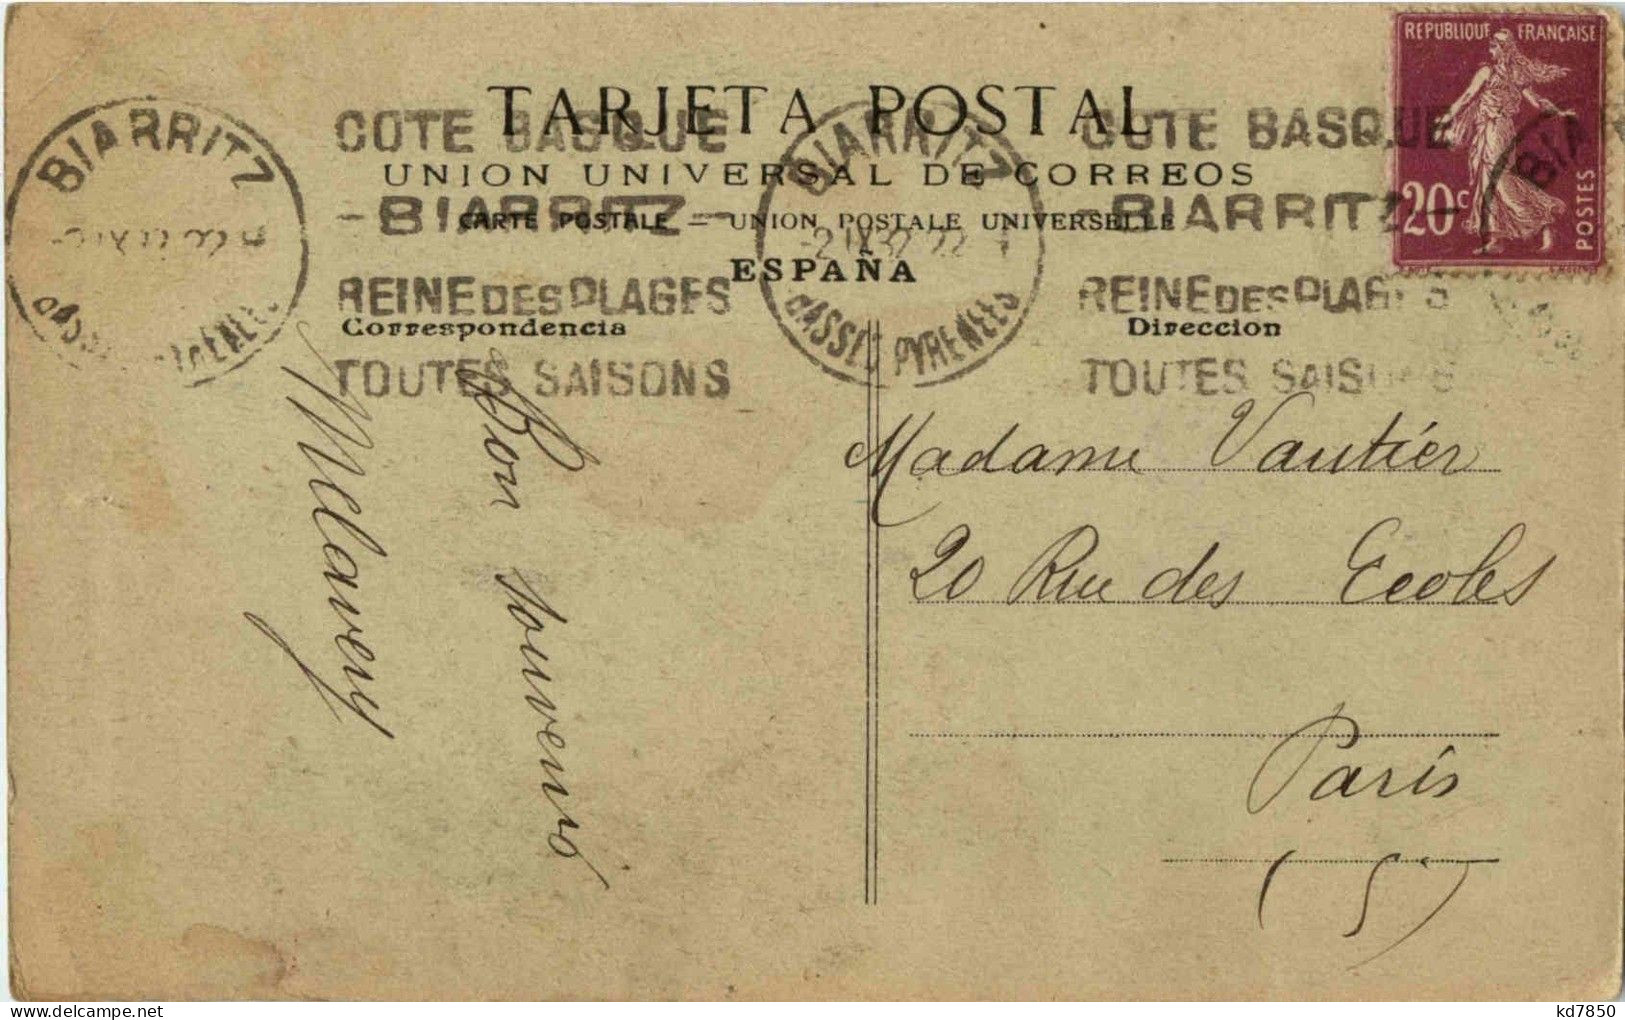 REPUBLIQUE FRANÇAISE
20c
POSTES
TARJETA POSTAL
UNION UNIVERSAL DE CORREOS
CARTE POSTALE = UNION POSTALE UNIVERSELLE
ESPAÑA
Correspondencia
Direccion
BIARRITZ
COTE BASQUE
-BIARRITZ-
REINE DES PLAGES
TOUTES SAISONS
BIARRITZ
BASSES PYRENEES
COTE BASQUE
-BIARRITZ-
REINE DES PLAGES
TOUTES SAISONS
Bon souvenir
Madame Vautier
20 Rue des Ecoles
Paris
(5)
kd7850